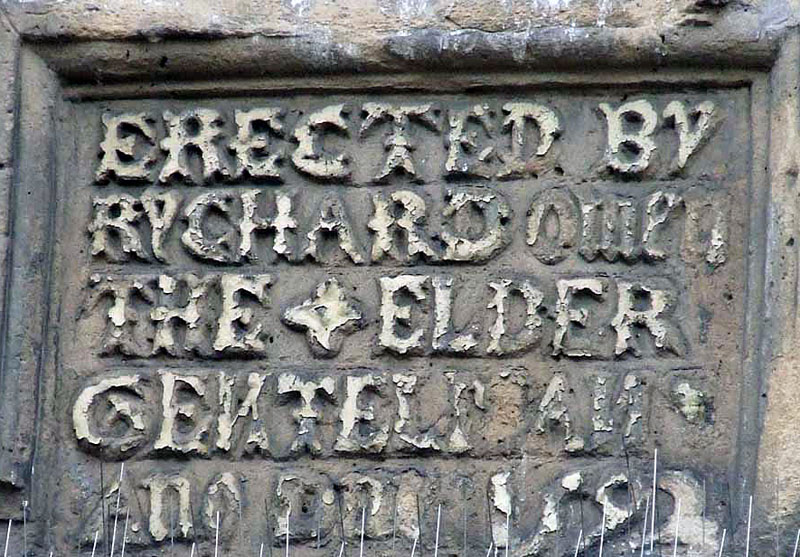 ERECTED BY
RYCHARD Owen
THE ELDER
GENTELMAN
ANO 1592